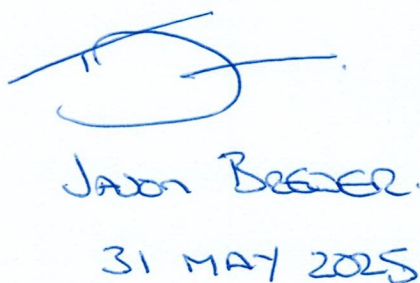 JASON BREWER.
31 MAY 2025